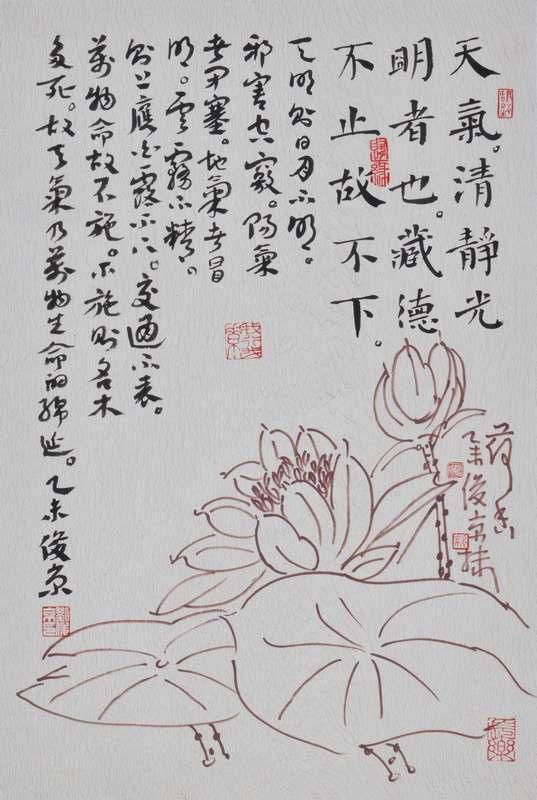 天氣。清靜光
明者也。藏德
不止故不下。
天明則日月不明。
邪害空竅。陽氣
者閉塞。地氣者冒
明。雲霧不精。
則上應白露不下。交通不表。
萬物命故不施。不施則名木
多死。故天氣乃萬物生命的綿延。乙未俊京
荷香
乙未俊京抹